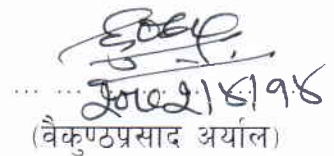 २०८२।४।१४
(वैकुण्ठप्रसाद अर्याल)